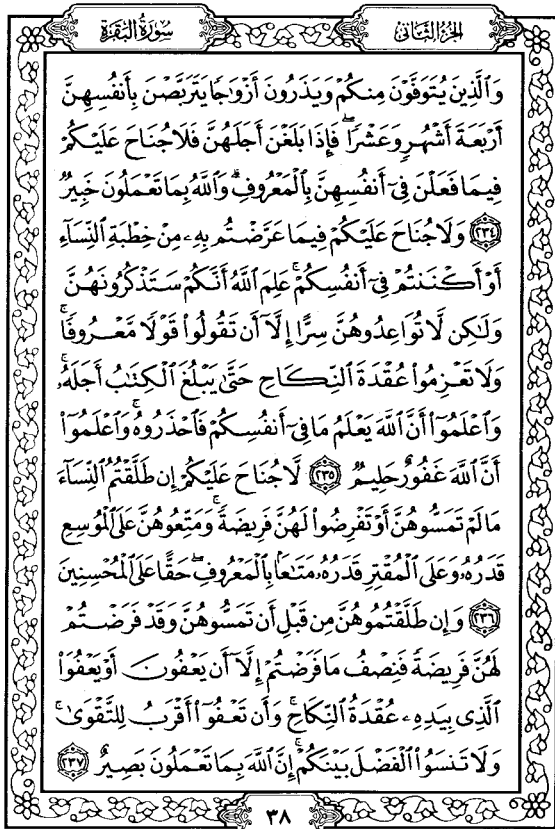 سُورَةُ البَقَرَةِ
الجزء الثاني
وَٱلَّذِينَ يُتَوَفَّوْنَ مِنكُمْ وَيَذَرُونَ أَزْوَٰجًا يَتَرَبَّصْنَ بِأَنفُسِهِنَّ
أَرْبَعَةَ أَشْهُرٍ وَعَشْرًا ۖ فَإِذَا بَلَغْنَ أَجَلَهُنَّ فَلَا جُنَاحَ عَلَيْكُمْ
فِيمَا فَعَلْنَ فِىٓ أَنفُسِهِنَّ بِٱلْمَعْرُوفِ ۗ وَٱللَّهُ بِمَا تَعْمَلُونَ خَبِيرٌ
﴿٢٣٤﴾ وَلَا جُنَاحَ عَلَيْكُمْ فِيمَا عَرَّضْتُم بِهِۦ مِنْ خِطْبَةِ ٱلنِّسَآءِ
أَوْ أَكْنَنتُمْ فِىٓ أَنفُسِكُمْ ۚ عَلِمَ ٱللَّهُ أَنَّكُمْ سَتَذْكُرُونَهُنَّ
وَلَٰكِن لَّا تُوَاعِدُوهُنَّ سِرًّا إِلَّآ أَن تَقُولُوا۟ قَوْلًا مَّعْرُوفًا ۚ
وَلَا تَعْزِمُوا۟ عُقْدَةَ ٱلنِّكَاحِ حَتَّىٰ يَبْلُغَ ٱلْكِتَٰبُ أَجَلَهُۥ ۚ
وَٱعْلَمُوٓا۟ أَنَّ ٱللَّهَ يَعْلَمُ مَا فِىٓ أَنفُسِكُمْ فَٱحْذَرُوهُ ۚ وَٱعْلَمُوٓا۟
أَنَّ ٱللَّهَ غَفُورٌ حَلِيمٌ ﴿٢٣٥﴾ لَّا جُنَاحَ عَلَيْكُمْ إِن طَلَّقْتُمُ ٱلنِّسَآءَ
مَا لَمْ تَمَسُّوهُنَّ أَوْ تَفْرِضُوا۟ لَهُنَّ فَرِيضَةً ۚ وَمَتِّعُوهُنَّ عَلَى ٱلْمُوسِعِ
قَدَرُهُۥ وَعَلَى ٱلْمُقْتِرِ قَدَرُهُۥ مَتَٰعًۢا بِٱلْمَعْرُوفِ ۖ حَقًّا عَلَى ٱلْمُحْسِنِينَ
﴿٢٣٦﴾ وَإِن طَلَّقْتُمُوهُنَّ مِن قَبْلِ أَن تَمَسُّوهُنَّ وَقَدْ فَرَضْتُمْ
لَهُنَّ فَرِيضَةً فَنِصْفُ مَا فَرَضْتُمْ إِلَّآ أَن يَعْفُونَ أَوْ يَعْفُوَا۟
ٱلَّذِى بِيَدِهِۦ عُقْدَةُ ٱلنِّكَاحِ ۚ وَأَن تَعْفُوٓا۟ أَقْرَبُ لِلتَّقْوَىٰ ۚ
وَلَا تَنسَوُا۟ ٱلْفَضْلَ بَيْنَكُمْ ۚ إِنَّ ٱللَّهَ بِمَا تَعْمَلُونَ بَصِيرٌ ﴿٢٣٧﴾
٣٨